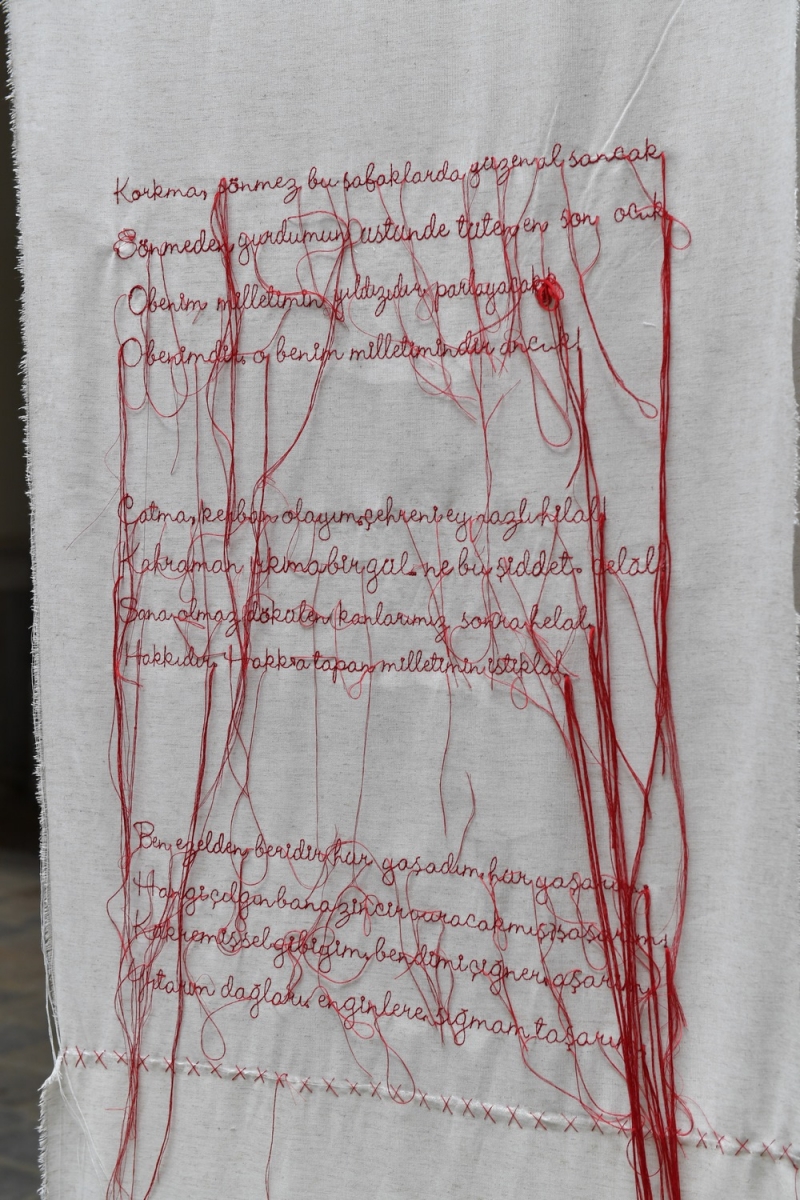 Korkma, sönmez bu şafaklarda yüzen al sancak
Sönmeden yurdumun üstünde tüten en son ocak
O benim milletimin yıldızıdır parlayacak
O benimdir o benim milletimindir ancak!
Çatma, kurban olayım çehreni ey nazlı hilal!
Kahraman ırkıma bir gül. ne bu şiddet bu celal
Sana olmaz dökülen kanlarımız sonra helal
Hakkıdır, Hakk'a tapan milletimin istiklal
Ben ezelden beridir hür yaşadım, hür yaşarım
Hangi çılgın bana zincir vuracakmış şaşarım!
Kükremiş sel gibiyim, bendimi çiğner, aşarım
Yırtarım dağları, enginlere sığmam taşarım